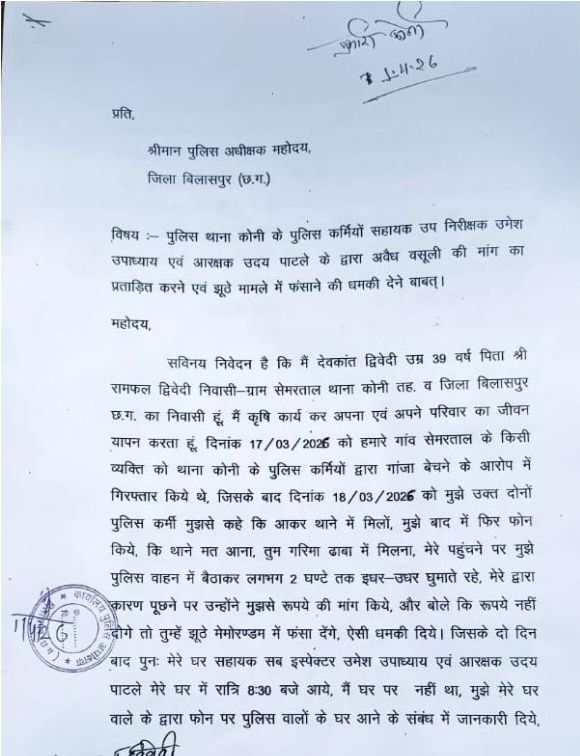 प्रभारी कोनी
1.4.26
प्रति,
श्रीमान पुलिस अधीक्षक महोदय,
जिला बिलासपुर (छ.ग.)
विषय :– पुलिस थाना कोनी के पुलिस कर्मियों सहायक उप निरीक्षक उमेश
उपाध्याय एवं आरक्षक उदय पाटले के द्वारा अवैध वसूली की मांग का
प्रताड़ित करने एवं झूठे मामले में फंसाने की धमकी देने बाबत्।
महोदय,
सविनय निवेदन है कि मैं देवकांत द्विवेदी उम्र 39 वर्ष पिता श्री
रामफल द्विवेदी निवासी–ग्राम सेमरताल थाना कोनी तह. व जिला बिलासपुर
छ.ग. का निवासी हूं, मैं कृषि कार्य कर अपना एवं अपने परिवार का जीवन
यापन करता हूं, दिनांक 17/03/2026 को हमारे गांव सेमरताल के किसी
व्यक्ति को थाना कोनी के पुलिस कर्मियों द्वारा गांजा बेचने के आरोप में
गिरफ्तार किये थे, जिसके बाद दिनांक 18/03/2026 को मुझे उक्त दोनों
पुलिस कर्मी मुझसे कहे कि आकर थाने में मिलों, मुझे बाद में फिर फोन
किये, कि थाने मत आना, तुम गरिमा ढाबा में मिलना, मेरे पहुंचने पर मुझे
पुलिस वाहन में बैठाकर लगभग 2 घण्टे तक इधर–उधर घुमाते रहे, मेरे द्वारा
कारण पूछने पर उन्होंने मुझसे रूपये की मांग किये, और बोले कि रूपये नहीं
दोगे तो तुम्हें झूठे मेमोरण्डम में फंसा देंगे, ऐसी धमकी दिये। जिसके दो दिन
बाद पुनः मेरे घर सहायक सब इंस्पेक्टर उमेश उपाध्याय एवं आरक्षक उदय
पाटले मेरे घर में रात्रि 8:30 बजे आये, मैं घर पर नहीं था, मुझे मेरे घर
वाले के द्वारा फोन पर पुलिस वालों के घर आने के संबंध में जानकारी दिये,